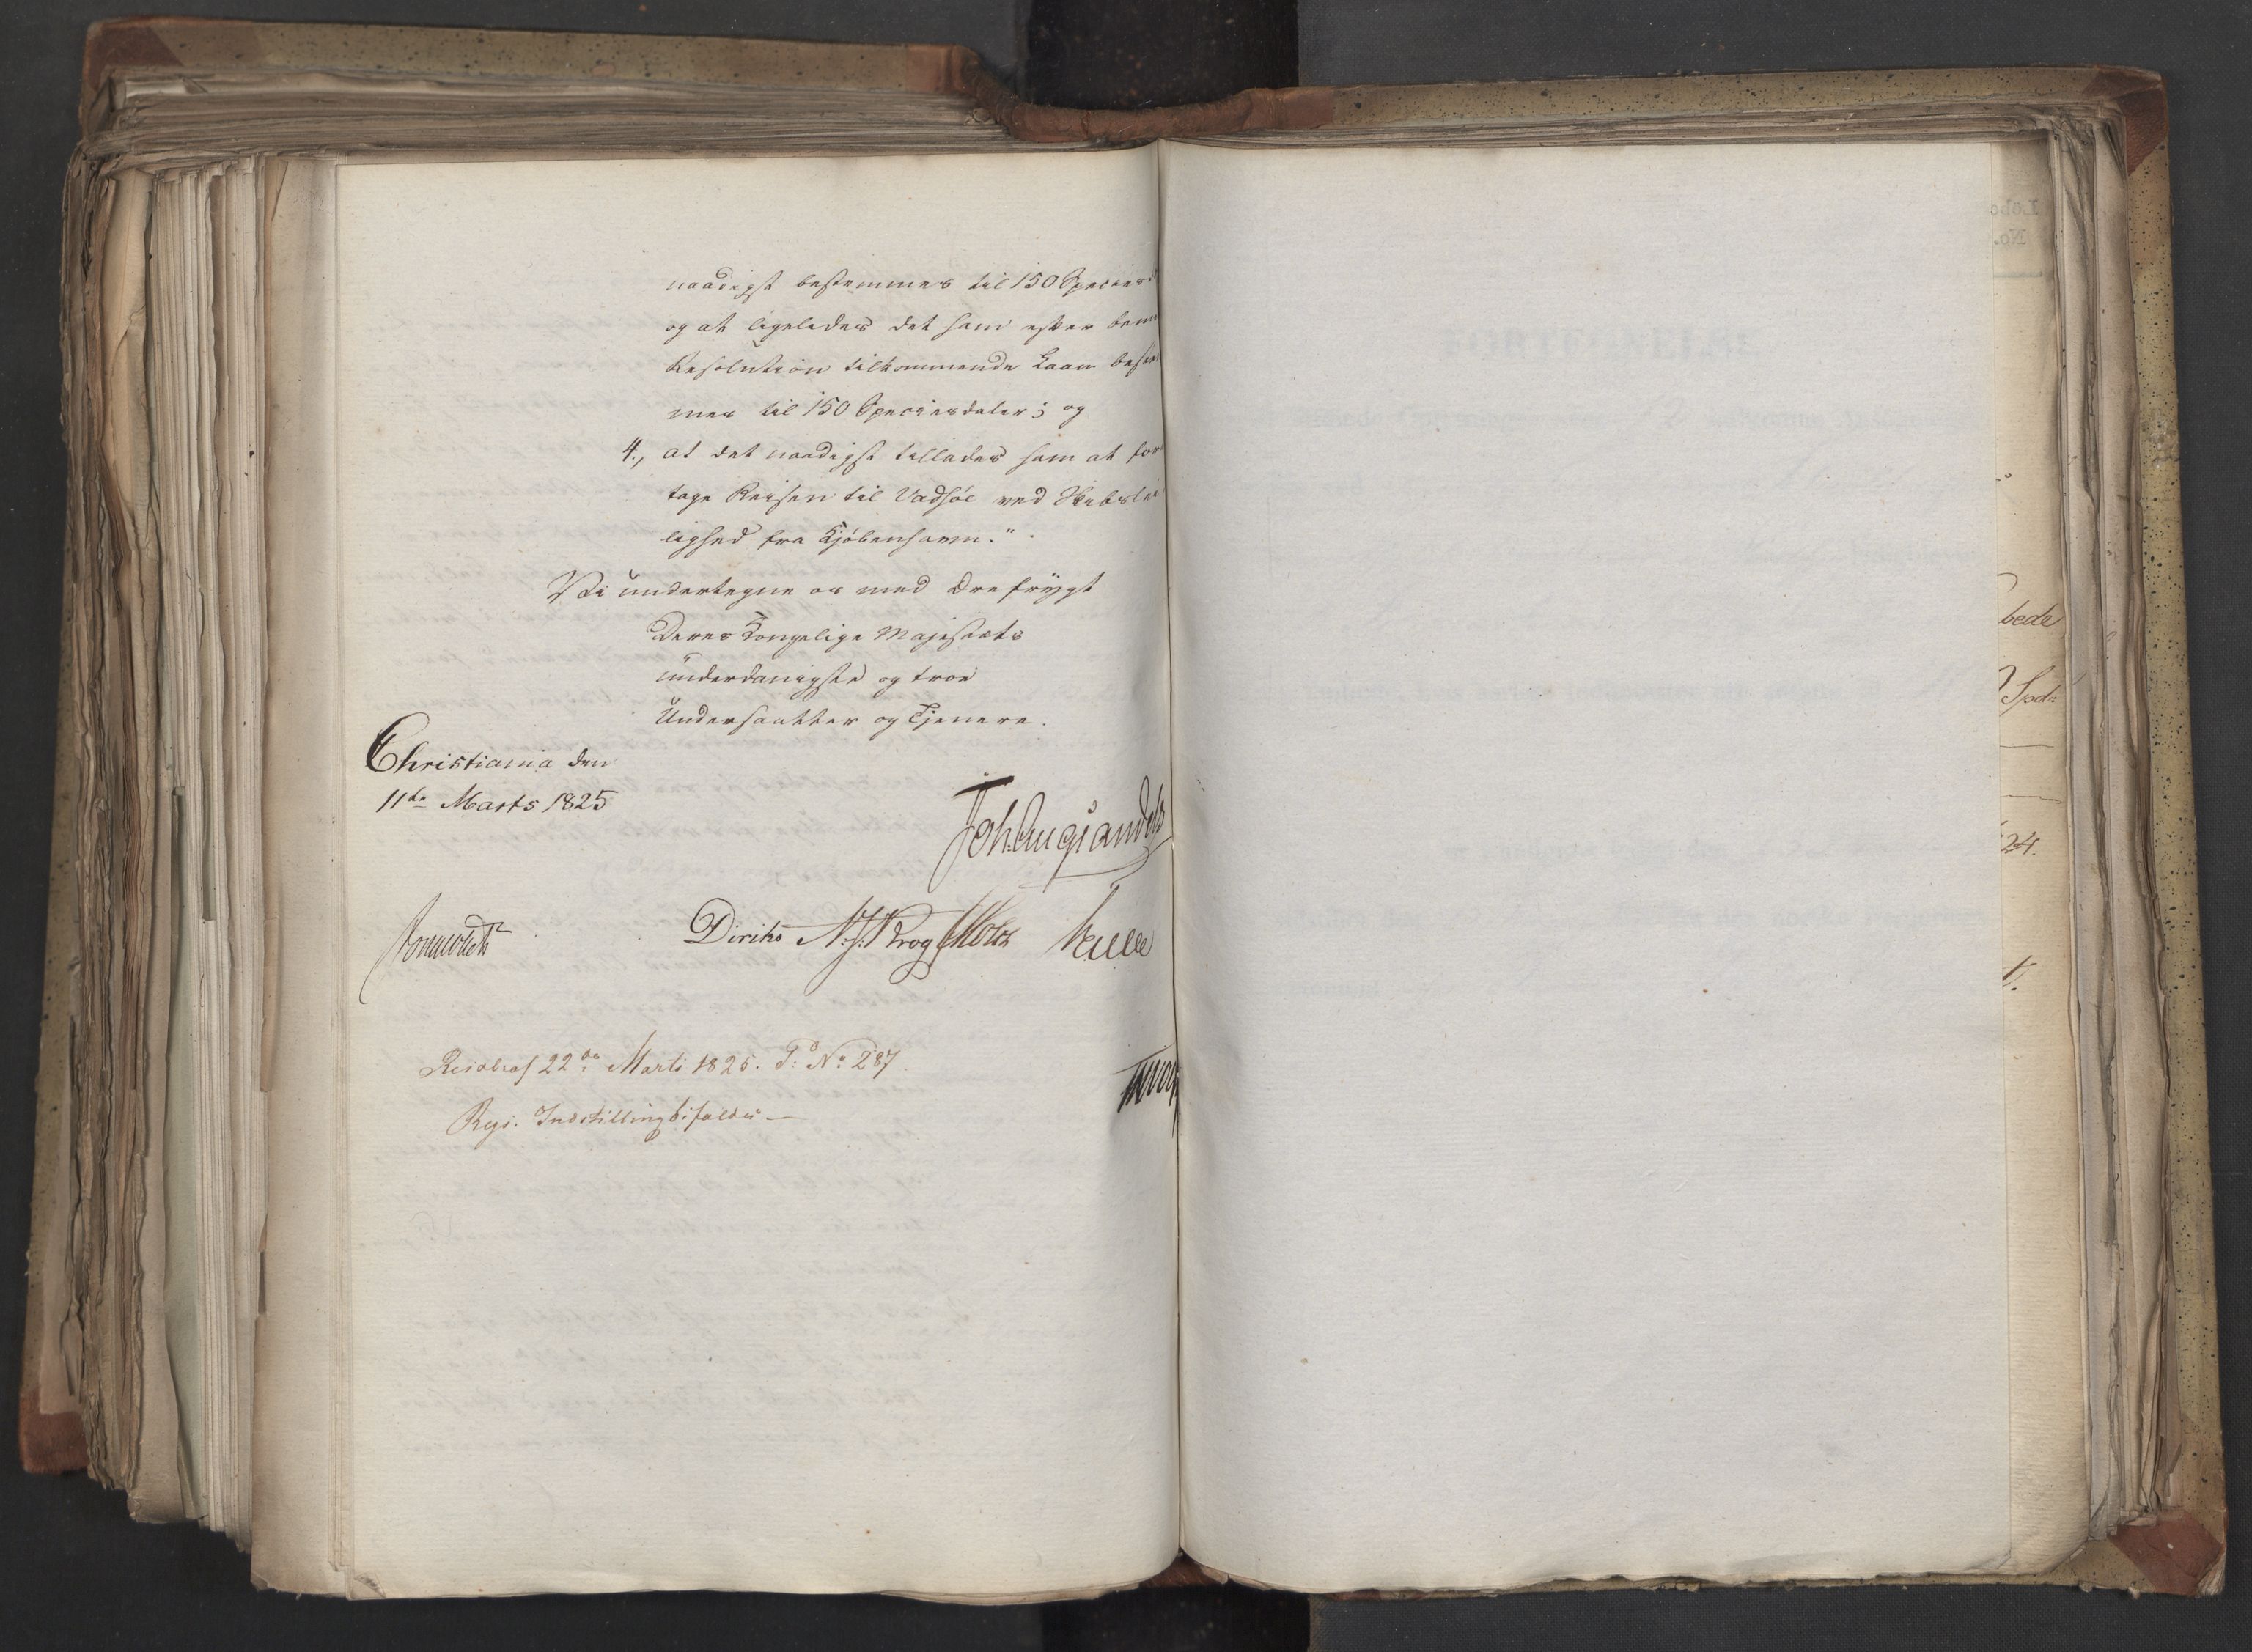 naadigst bestemmes til 150 Speciesd
og at ligeledes det ham efter bem
Resolution tilkommende Laan bestem
mes til 150 Speciesdaler; og
4., at det naadigst tillades ham at fore
tage Reisen til Vadsöe ved Skibslei
lighed fra Kjöbenhavn."
Vi undertegne os med Ærefrygt
Deres Kongelige Majestæts
underdanigste og troe
Undersaatter og Tjenere.
Christiania den
11te Marts 1825
Joh. Aug. Sandels
Sommerhielm Diriks N. J. Krog J Motz
Resolveret 22de Marts 1825. P: No 287.
Regs. Indstilling bifaldes —
bede
Spd:
24.